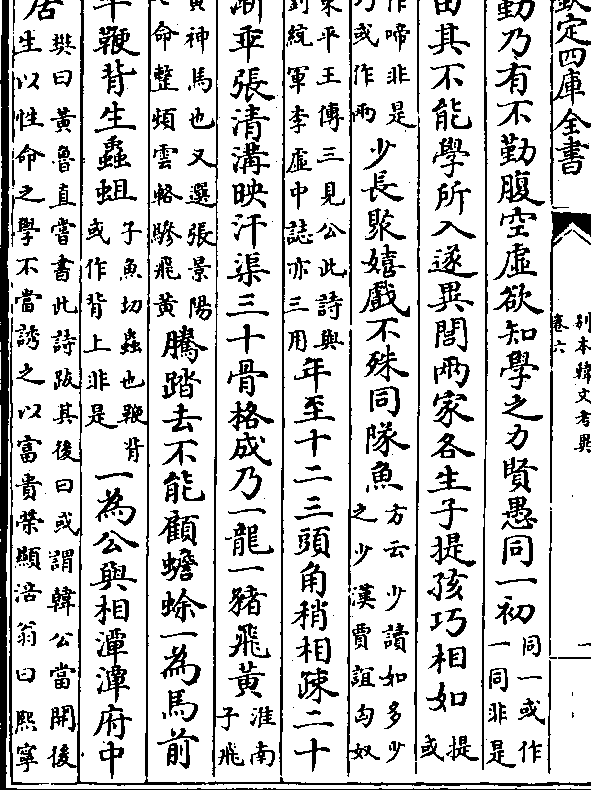 欽定四庫全書
别本韓文考異
卷六
一
勤乃有不勤腹空虛欲知學之力賢愚同一初
同一或作
一同非是
由其不能學所入遂異閭兩家各生子提孩巧相如
提
或
作啼非是
乃或作兩
少長聚嬉戲不殊同隊魚
方云少讀如多少
之少漢賈誼匈奴
東平王傳三見公此詩與
劉統軍李虛中誌亦三用
年至十二三頭角稍相疎二十
漸乖張清溝映汙渠三十骨格成乃一龍一豬飛黄
淮南
子飛
黄神馬也又選張景陽
命整頓雲輅驂飛黄
騰踏去不能顧蟾蜍一為馬前
卒鞭背生蟲蛆
子魚切蟲也鞭背
或作背上非是
一為公與相潭潭府中
居
樊曰黄魯直嘗書此詩跋其後曰或謂韓公當開後
生以性命之學不當誘之以富貴榮顯涪翁曰熙寧